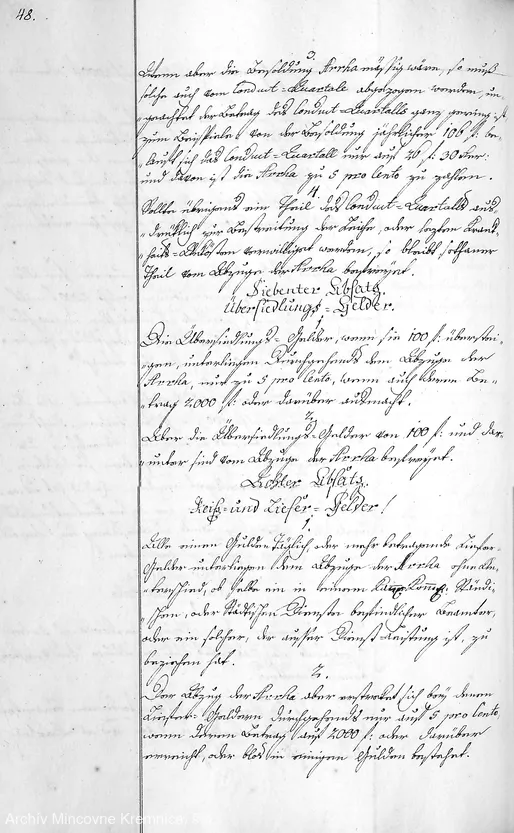 48.
3.
Wenn aber die Besoldung Arrha mässig wäre, so muß
solche auch vom Conduct-Quartale abgezogen werden, un-
geachtet der Betrag des Conduct-Quartalls ganz gering ist
zum Beispiele von der Besoldung jährlicher 106 f: be-
lauft sich das Conduct-Quartall nur auf 26 f: 30 Xer:
und davon ist die Arrha zu 5 pro Cento zu zahlen.
4.
Sollte übrigens ein Theil des Conduct-Quartalls aus-
drücklich zur Bestreitung der Leiche, oder letzten Krank-
heits-Unkösten verwilliget werden, so bleibt solchaner
Theil vom Abzuge der Arrha befreyet.
Siebenter Absatz.
Übersiedlungs-Gelder.
1.
Die Übersiedlungs-Gelder, wenn sie 100 f: überstei-
gen, unterliegen durchgehends dem Abzuge der
Arrha, nur zu 5 pro Cento, wenn auch deren Be-
trag 2000 f: oder darüber ausmacht.
2.
Aber die Übersiedlungs-Gelder von 100 f: und dar-
unter sind vom Abzuge der Arrha befreyet.
Achter Absatz.
Reiß- und Liefer-Gelder!
1.
Alle einen Gulden täglich oder mehr betragende Liefer-
Gelder unterliegen dem Abzuge der Arrha ohne Un-
terschied, ob selbe ein in seinem Ständi-
schen, oder Städtischen Dienste befindlicher Beamter,
oder ein solcher, der ausser Dienst-Leistung ist, zu
beziehen hat.
2.
Der Abzug der Arrha aber erstreket sich bey denen
Liefer-Geldern durchgehends nur auf 5 pro Cento,
wenn deren Betrag auf 2000 f: oder darüber
erreicht, oder blos in einigen Gulden bestehet.
Archív Mincovne Kremnica